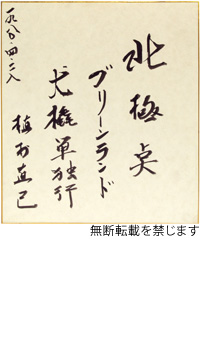 北極点
グリーンランド
犬橇単独行
植村直己
一九八〇・四・二八
無断転載を禁じます